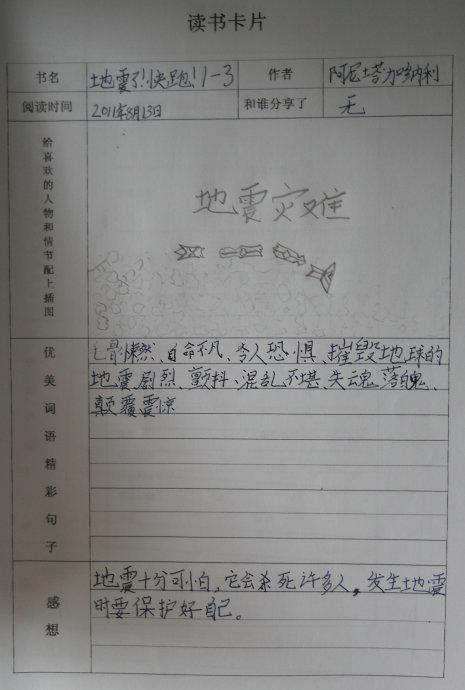 读书卡片
书名 地震了!快跑!1-3 作者 阿尼塔·加纳利
阅读时间 2011年8月23日 和谁分享了 无
给喜欢的人物和情节配上插图
地震灾难
优美词语精彩句子
骨悚然、自命不凡、令人恐惧、摧毁地球的
地震剧烈、颤抖、混乱不堪、失魂落魄、
颠覆震惊
感想
地震十分可怕,它会杀死许多人,发生地震
时要保护好自己。